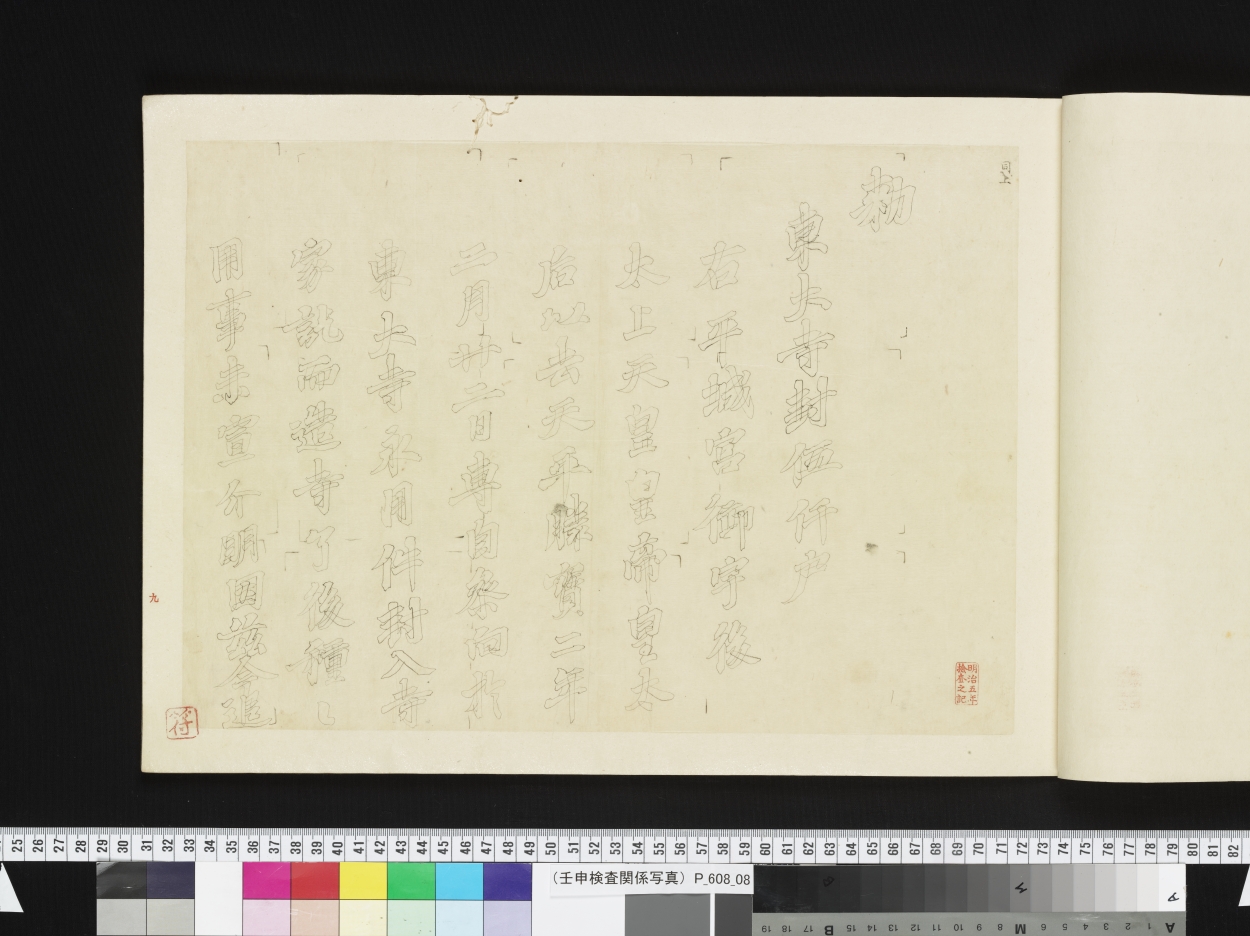 同上
勅
東大寺封伍仟戸
右平城宮御宇後
太上天皇皇帝皇太
后以去天平勝寳二年
二月廿二日専自参向於
東大寺永用件封入寺
家訖而造寺了後種〻
用事未宣分明因茲今追
明治五年
検査之記
符
九
(壬申検査関係写真) P_608_08
25 26 27 28 29 30 31 32 33 34 35 36 37 38 39 40 41 42 43 44 45 46 47 48 49 50 51 52 53 54 55 56 57 58 59 60 61 62 63 64 65 66 67 68 69 70 71 72 73 74 75 76 77 78 79 80 81 82
19 18 17 16 15 B 14 13 12 11 10 9 8 M 7 6 5 4 3 2 1 A